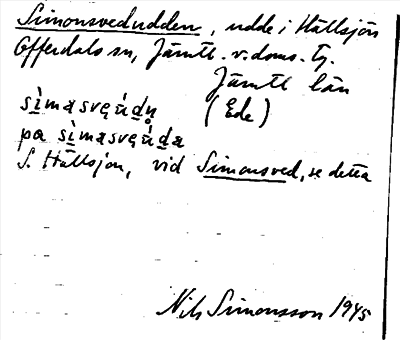 Simonsvedudden, udde i Hällsjön
Offerdals sn, Jämtl. v. doms. tg.
Jämtl län
(Ede)
på
S. Hällsjön, vid Simonsved, se detta
Nils Simonsson 1945